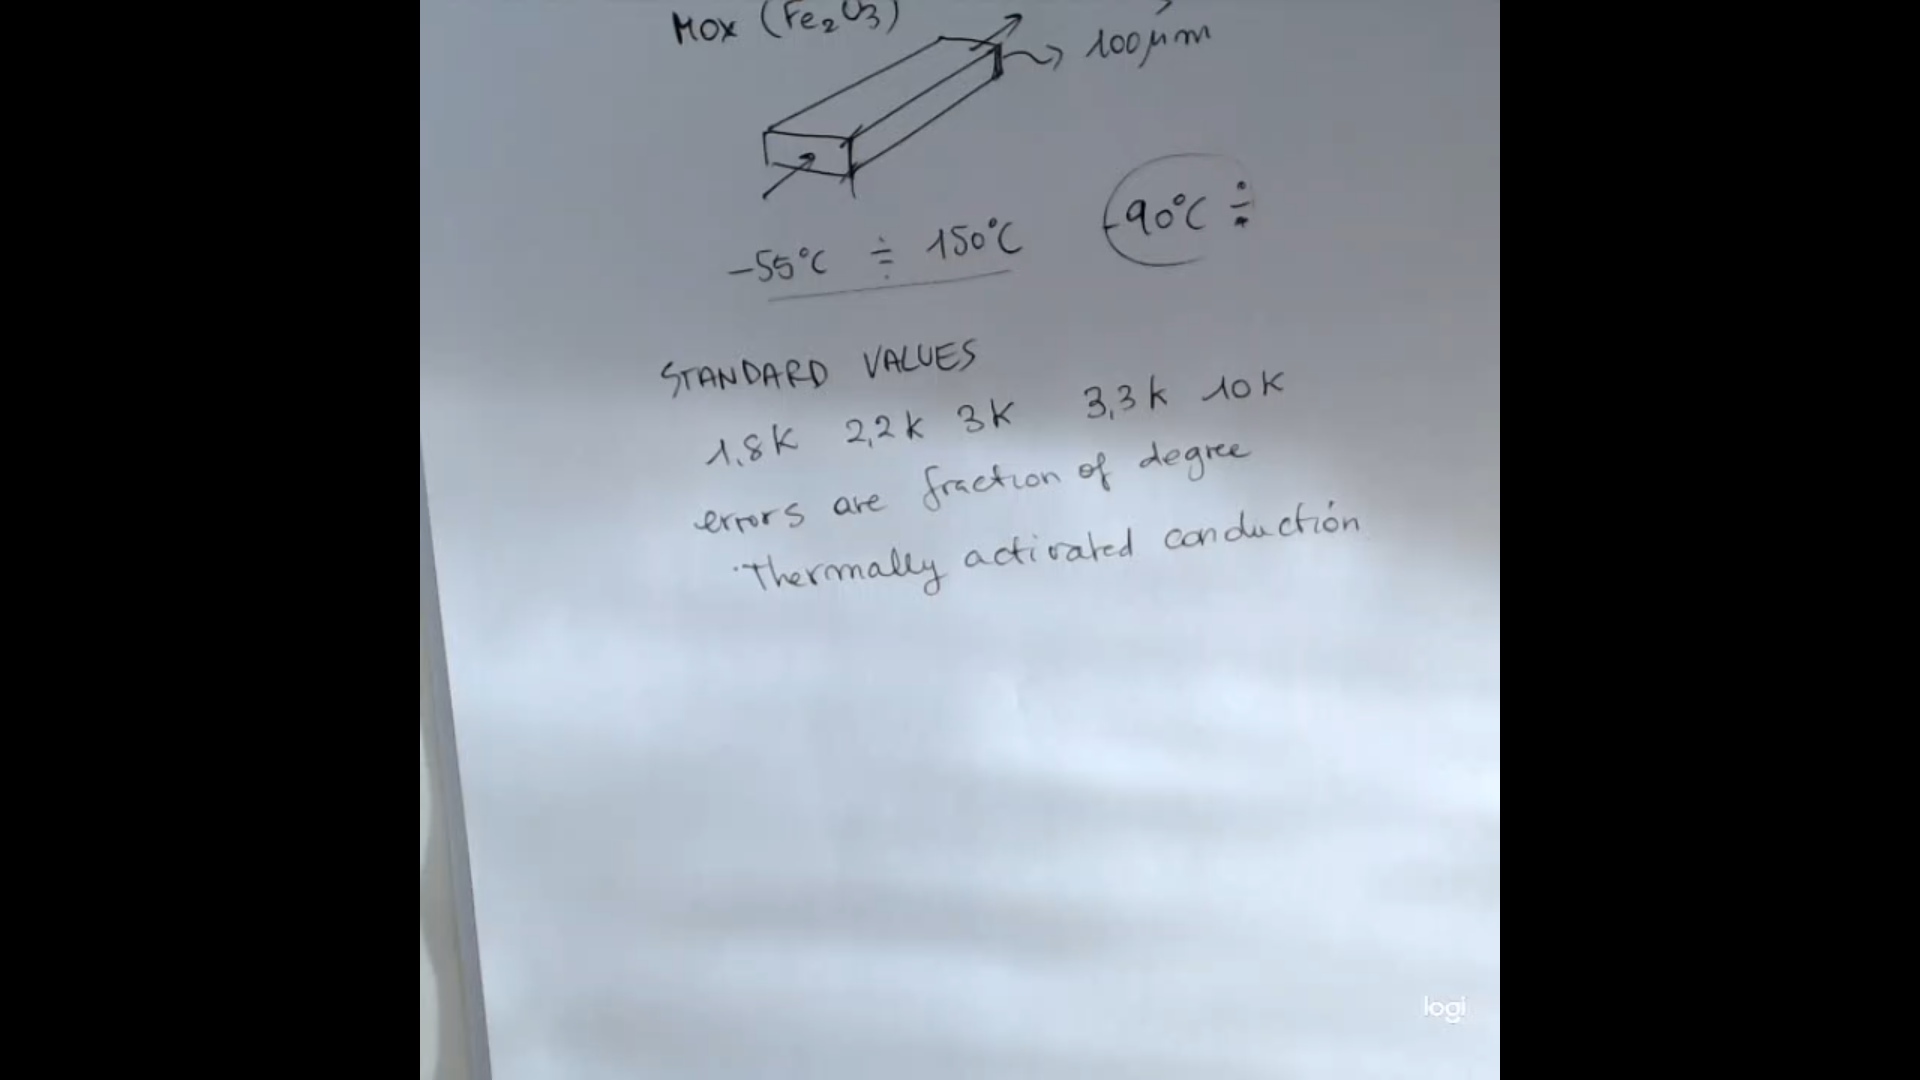 MOX (Fe2O3)
100 μm
-55°C ÷ 150°C
-90°C ÷
STANDARD VALUES
1,8K 2,2K 3K 3,3K 10K
errors are fraction of degree
·Thermally activated conduction
logi